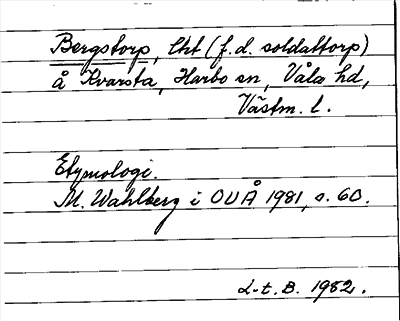 Bergstorp, lht (f.d. soldattorp)
å Kvarsta, Harbo sn, Våla hd,
Västm. l.
Etymologi.
M. Wahlberg i OUÅ 1981, s. 60.
L-t. B. 1982.